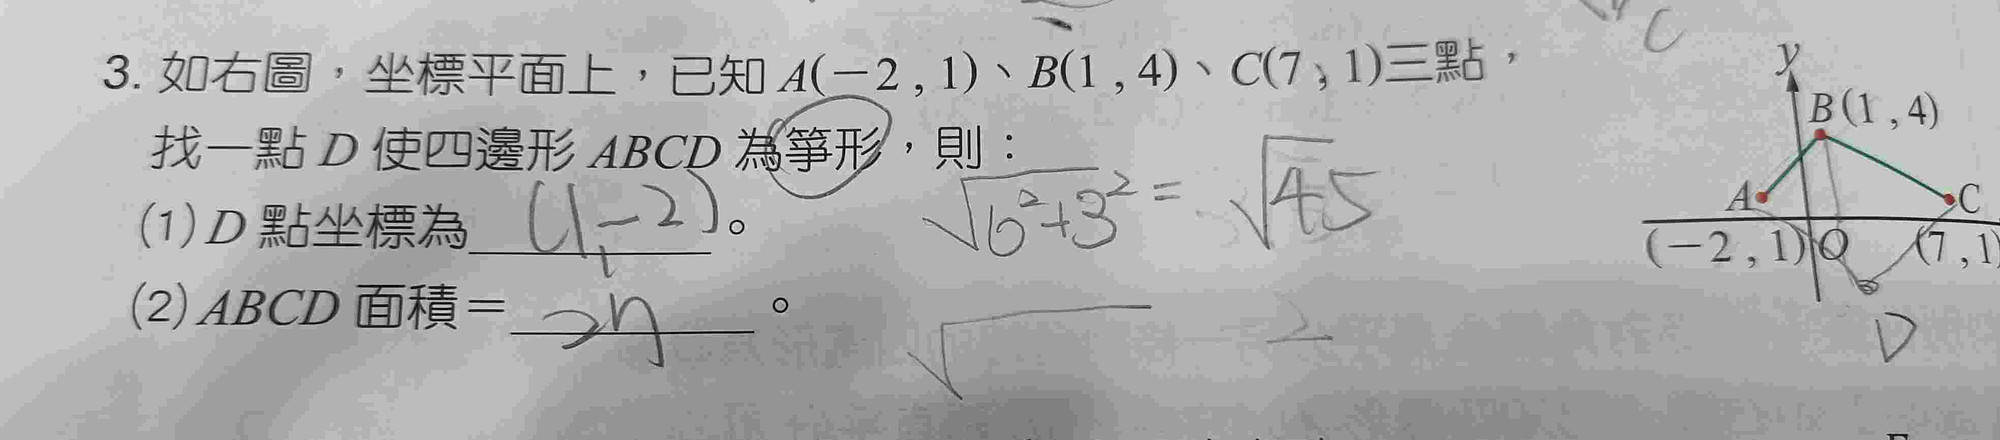 C
3. 如右圖，坐標平面上，已知 A(−2 , 1)、B(1 , 4)、C(7 , 1)三點，
找一點 D 使四邊形 ABCD 為箏形，則：
(1) D 點坐標為 (1,−2) 。
√6²+3² = √45
(2) ABCD 面積＝ 27 。
√
2
y
B(1 , 4)
A
C
(−2 , 1)
O
(7 , 1)
D